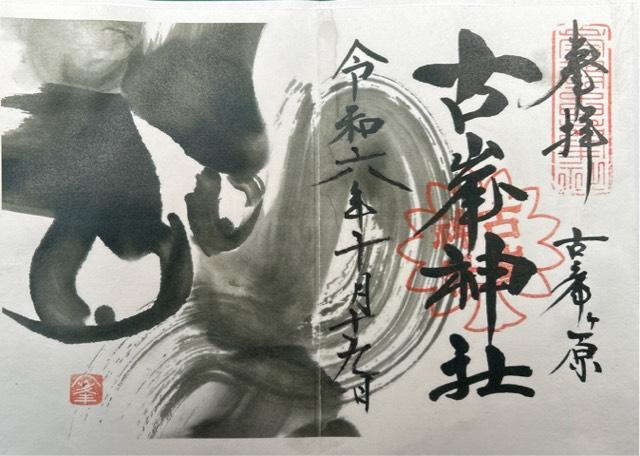 奉拝
古峯ヶ原
古峯神社
令和六年十月十九日